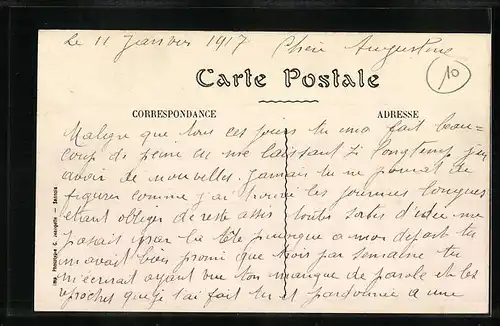 Le 11 Janvier 1917 Chère Augustine
10
Carte Postale
CORRESPONDANCE
ADRESSE
Malgre que tous ces jours tu ma fait beau=
coup de peine en me laissant si longtemp
avoir de nouvelles. jamais tu ne pourrat te
figurer comme j'ai trouvé les journees longues
etant obliger de reste assis toutes sortes d'idée me
pasait par la tête puisque a mon depart tu
m'avait bien promi que trois par semaine tu
m'ecrirait ayant vue ton manque de parole et les
reproches que je t'ai fait tu et pardonnée a une
Imp. Phototypie